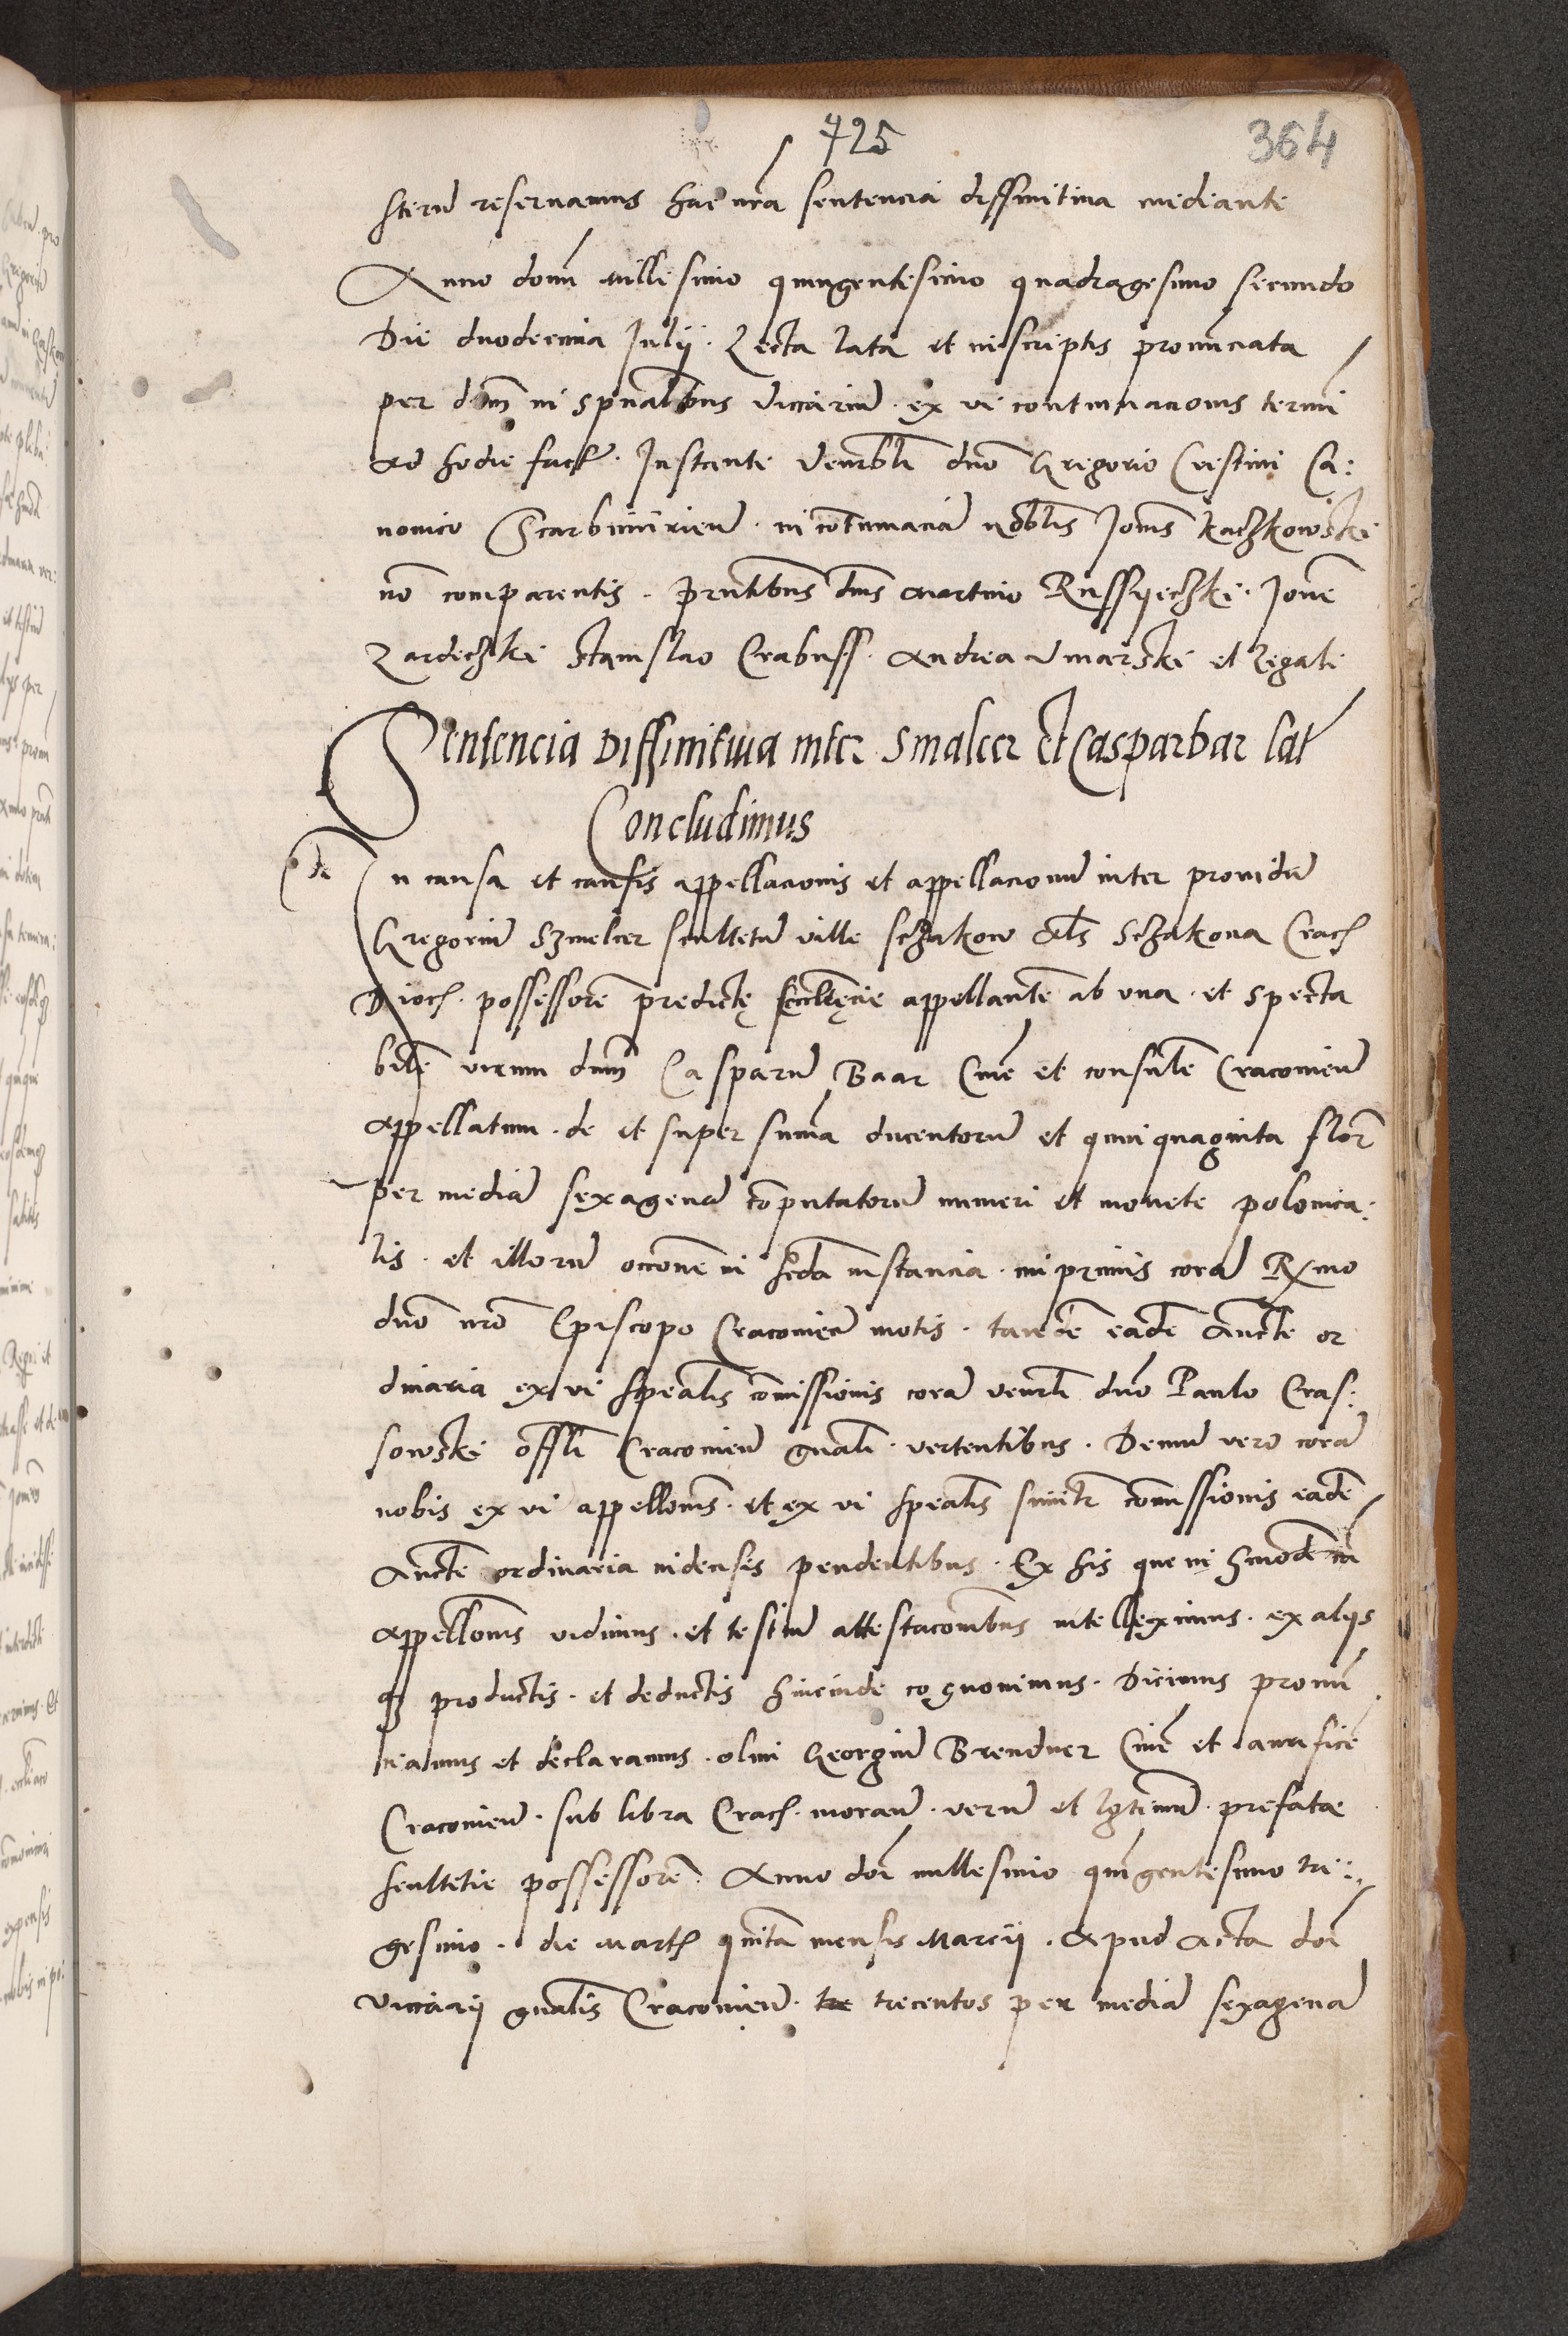 725
364
sterum reservamus hac nra sentencia diffinitiva mediante
Anno domi millesimo quingentesimo quadragesimo secundo
Die duodecima Julij. Lecta lata et in scriptis pronunciata
per dnm in spūalibus viccarium. ex vi continuacionis termini
ad hodie facte. Instante venerabli dno Gregorio Crestini Ca:
nonico Scarbimirien. in cotumacia noblis Joīs Kaczkowski
no comparentis. Prntibus dnis Martino Russyeczki. Jone
Zardeczki Stanislao Crabuss. Andrea Umarski et Legati
Sentencia Diffinitiva inter Smalcer et Casparbar lat
Concludimus
In causa et causis appellacionis et appellacionum inter providum
Gregorium Szmelcer scultetum ville sczakow als Sczakova Crac
Dioc. possessorem predicte scultecie appellantem ab una. et specta
bilem virum dnm Casparum Baar Civem et consulem Cracovien
appellatum. de et super summa ducentorum et quinquaginta flor
per mediam sexagenam computatorum numeri et monete polonica:
lis. et illorum occone in scda instancia. in primis coram Rxmo
dno nro Episcopo Cracovien motis. tandem eadem aucte or
dinaria ex vi spealis comissionis coram venrli dno Paulo Cras:
sowski offli Cracovien gnali. vertentibus. Demum vero coram
nobis ex vi appellonis. et ex vi spealis similr comissionis eadem
aucte ordinaria indecisis pendentibus. Ex his que in hmodi ca
appellonis vidimus. et testium attestaconibus intelleximus. ex alijs
q productis. et deductis hincinde cognovimus. Dicimus pronun
ciamus et declaramus. olim Georgium Brendner Civem et aurificem
Cracovien. sub libra Crac. moran. verum et lgtimum. prefatae
scultetie possessorem. Anno doi millesimo quingentesimo tri:
gesimo. die Martis quinta mensis Marcij. Apud Acta doi
viccarij gnalis Cracovien. tre trecentos per mediam sexagenam